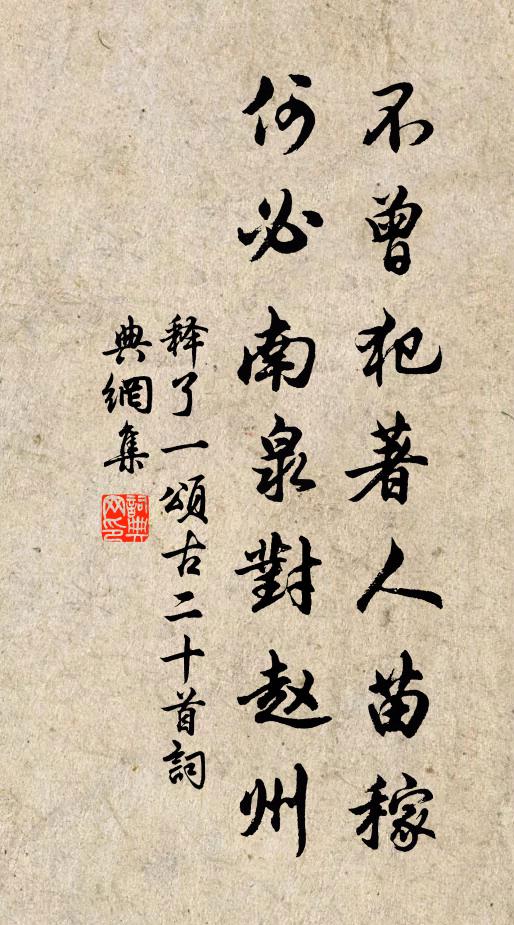 不曾犯著人苗稼
何必南泉對赵州
释了一頌古二十首詞
典網集
詞典
网印